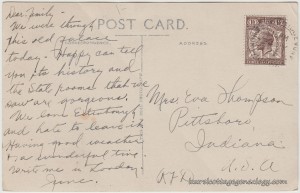 POST CARD.
ADDRESS.
Dear Family -
We were through
this old palace
today. Happy can tell
you its history and
the State rooms that we
saw are gorgeous.
We love
and hate to leave it.
Having good weather
& a wonderful time
Write me in London
June.
Miss Eva Thompson
Pittsboro
Indiana
U.S.A